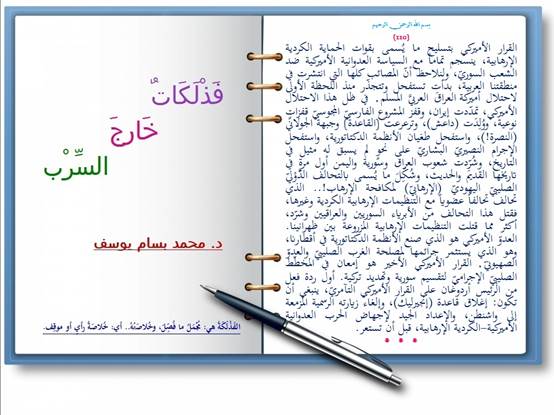 بسم الله الرحمن الرحيم
(110)
القرار الأميركي بتسليح ما يُسمى بقوات الحماية الكردية
الإرهابية، ينسجم تماماً مع السياسة العدوانية الأميركية ضد
الشعب السوريّ، ولنلاحظ أنّ المصائب كلها التي انتشرت في
منطقتنا العربية، بدأت تستفحل وتتجذّر منذ اللحظة الأولى
لاحتلال أميركة العراقَ العربيَّ المسلم. في ظل هذا الاحتلال
الأميركي، تمدّدت إيران، وقفز المشروع الفارسيّ المجوسيّ قفزات
نوعية، ووُلِدَت (داعش)، وترعرعت (القاعدة) وجبهة الجولاني
(النصرة!)، واستفحل طغيان الأنظمة الدكتاتورية، واستفحل
الإجرام النصيريّ البشاريّ على نحوٍ لم يسبق له مثيل في
التاريخ، وشُرِّدت شعوب العراق وسورية واليمن أول مرةٍ في
تاريخها القديم والحديث، وشُكِّل ما يُسمى بالتحالف الدُّوَليّ
الصليبيّ اليهوديّ (الإرهابيّ) لمكافحة الإرهاب!.. الذي
تحالف تحالفاً عضوياً مع التنظيمات الإرهابية الكردية وغيرها،
فقتل هذا التحالف من الأبرياء السوريين والعراقيين وشرّد،
أكثر مما قتلت التنظيمات الإرهابية المزروعة بين ظهرانينا.
العدوّ الأميركي هو الذي صنع الأنظمة الدكتاتورية في أقطارنا،
وهو الذي يستثمر جرائمها لمصلحة الغرب الصليبيّ والعدوّ
الصهيونيّ. القرار الأميركي الأخير هو إمعان في المخطّط
الصليبيّ الإجراميّ لتقسيم سورية وتهديد تركية. أول ردة فعل
من الرئيس أردوغان على القرار الأميركي التآمريّ، ينبغي أن
تكون: إغلاق قاعدة (إنجيرليك)، وإلغاء زيارته الرسمية المزمعة
إلى واشنطن، والإعداد الجيد لإجهاض الحرب العدوانية
الأميركية-الكردية الإرهابية، قبل أن تستعر.
فَذْلَكَاتٌ
خَارِجَ
السِّرْب
د. محمد بسام يوسف
الفَذْلَكَةُ هي: مُجْمَلُ ما فُصِّلَ، وخُلاصَتُهُ.. أي: خُلاصَةُ رأيٍ أو موقِف.